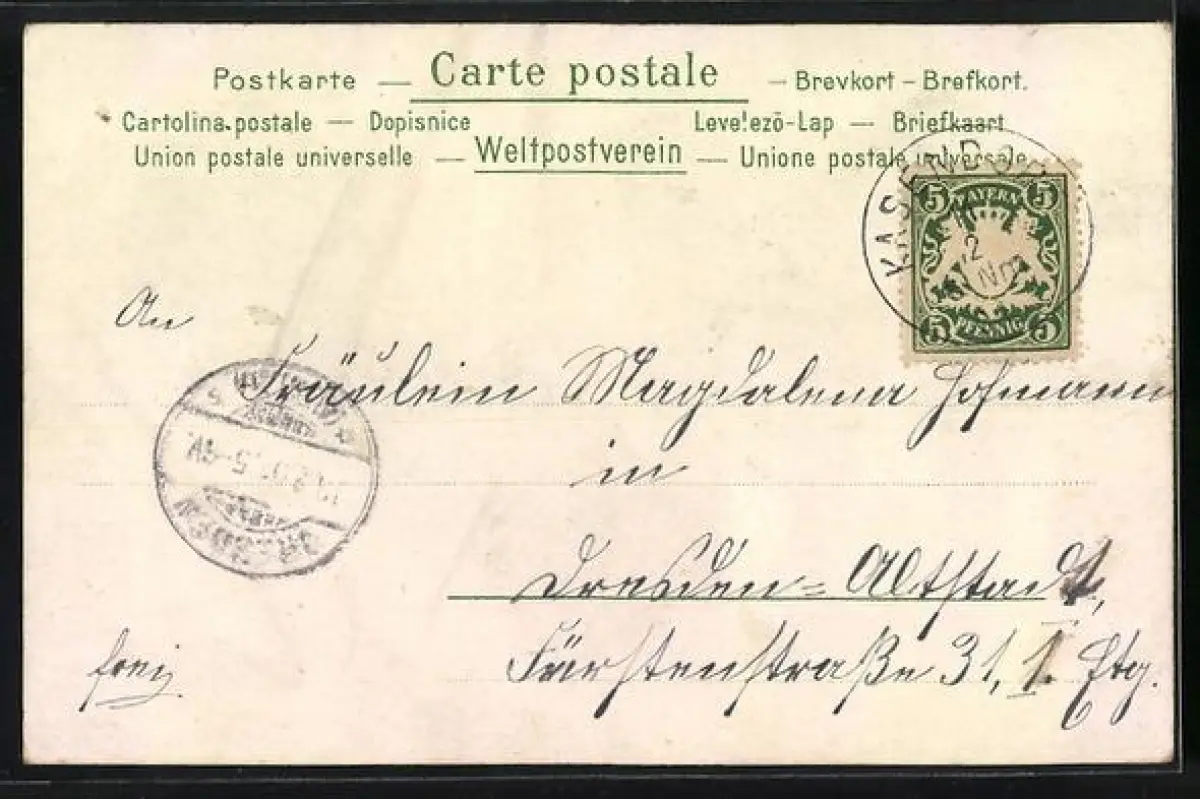 Postkarte — Carte postale — Brevkort – Brefkort.
Cartolina postale — Dopisnice Levelező-Lap — Briefkaart
Union postale universelle — Weltpostverein — Unione postale universale
KASENDO
5 BAYERN 5
2
Nm
5 PFENNIG 5
An
Fräulein Magdalena Hofmann
in
Dresden-Altstadt,
Fürstenstraße 31, I. Etg.
frei
DRESDEN
5-6V.